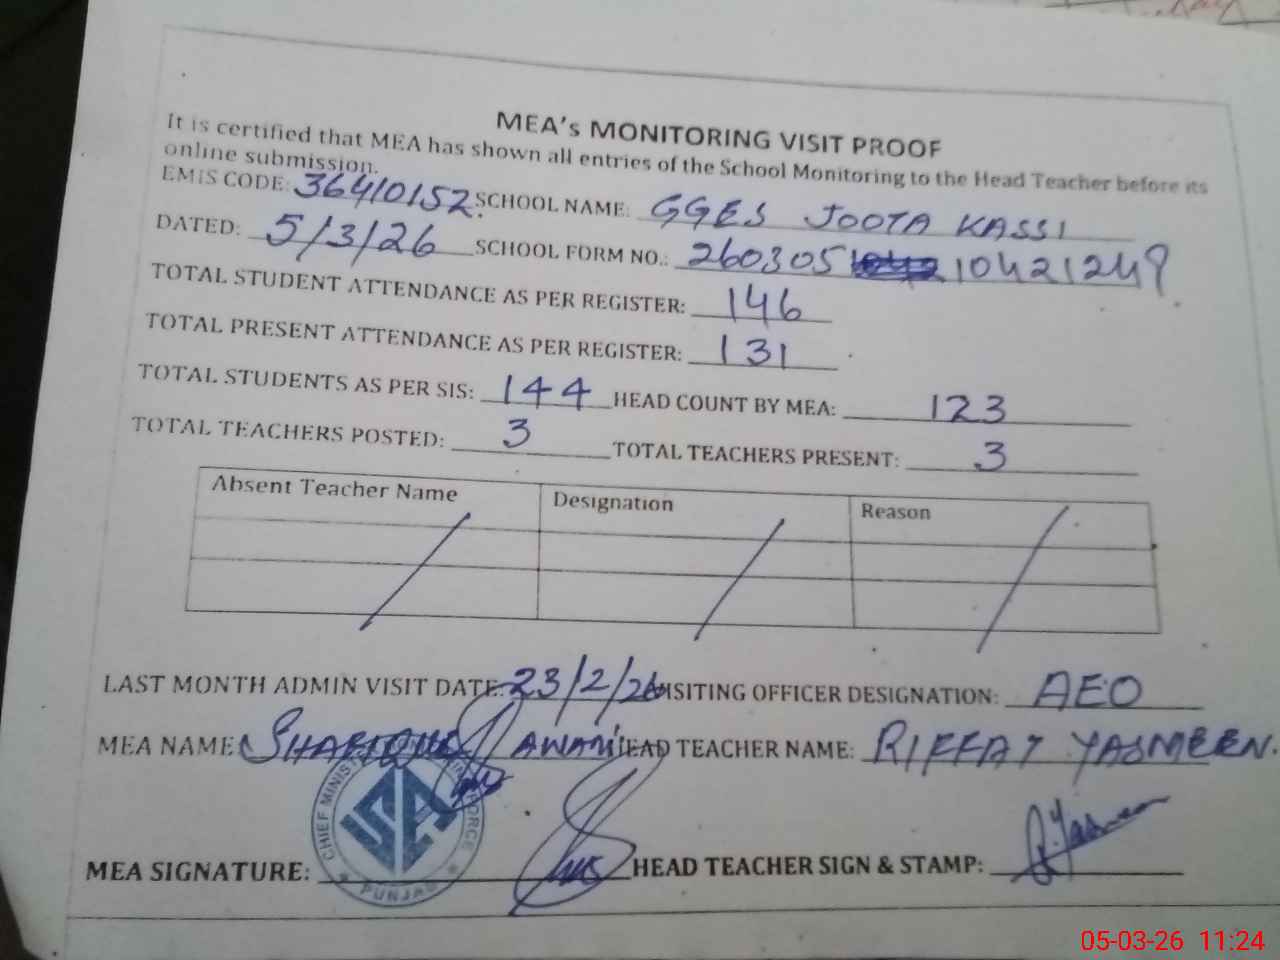 MEA's MONITORING VISIT PROOF
It is certified that MEA has shown all entries of the School Monitoring to the Head Teacher before its
online submission.
EMIS CODE: 36410152 SCHOOL NAME: GGES JOOTA KASSI
DATED: 5/3/26 SCHOOL FORM NO.: 260305 10421249
TOTAL STUDENT ATTENDANCE AS PER REGISTER: 146
TOTAL PRESENT ATTENDANCE AS PER REGISTER: 131
TOTAL STUDENTS AS PER SIS: 144 HEAD COUNT BY MEA: 123
TOTAL TEACHERS POSTED: 3 TOTAL TEACHERS PRESENT: 3
Absent Teacher Name Designation Reason
LAST MONTH ADMIN VISIT DATE: 23/2/26 VISITING OFFICER DESIGNATION: AEO
MEA NAME: AWAN HEAD TEACHER NAME: RIFFAT YASMEEN.
CHIEF MINISTER FORCE
PUNJAB
MEA SIGNATURE: HEAD TEACHER SIGN & STAMP: R.Yasmeen
05-03-26 11:24